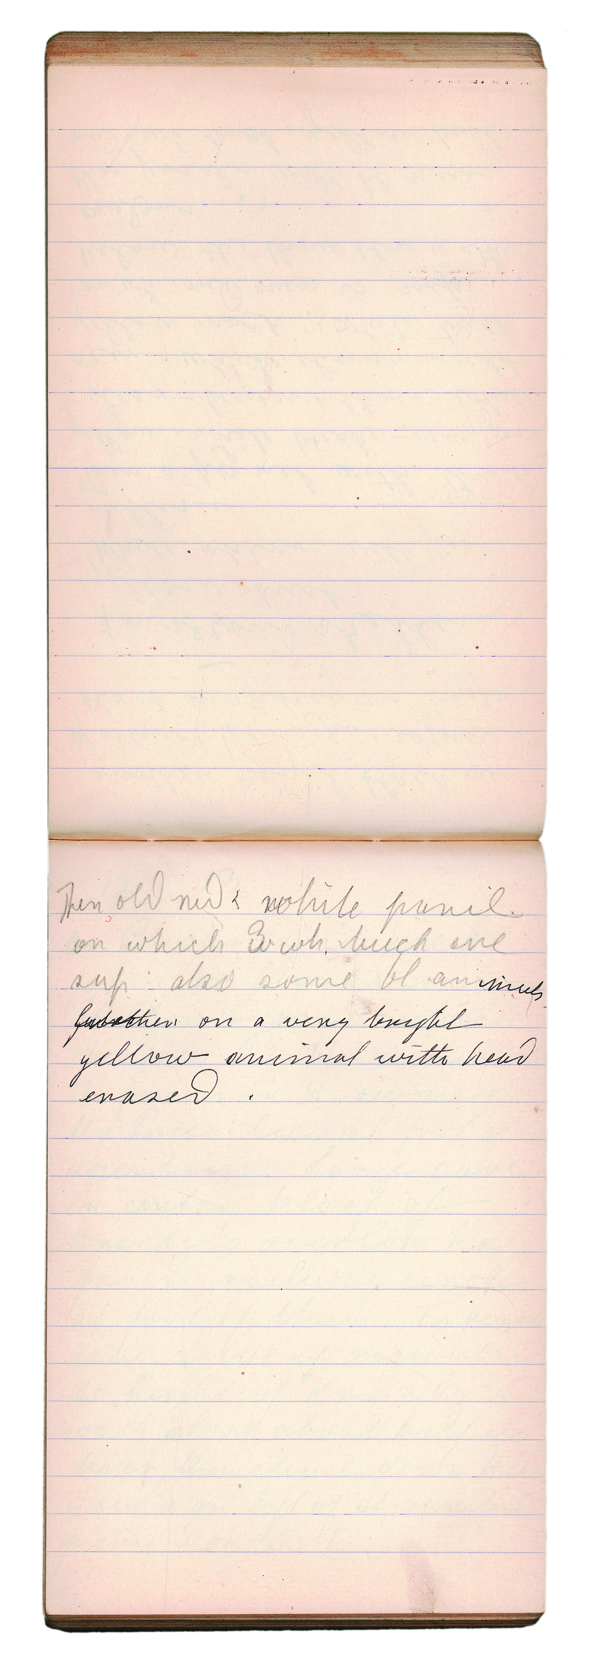 Then old red & white panel.
on which 3 wh. buck one
sup. also some bl animals
further on a very bright
yellow animal with head
erased.